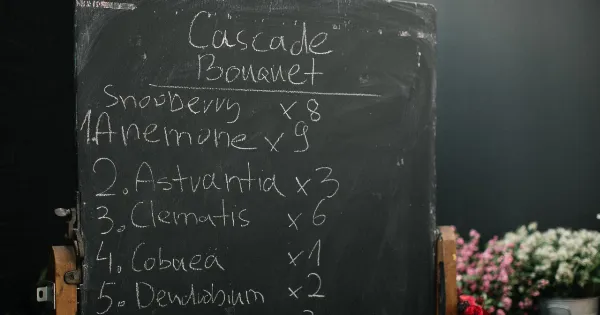 Cascade
Bouquet
Snowberry x 8
1. Anemone x 9
2. Astrantia x 3
3. Clematis x 6
4. Cobaea x 1
5. Dendrobium x 2